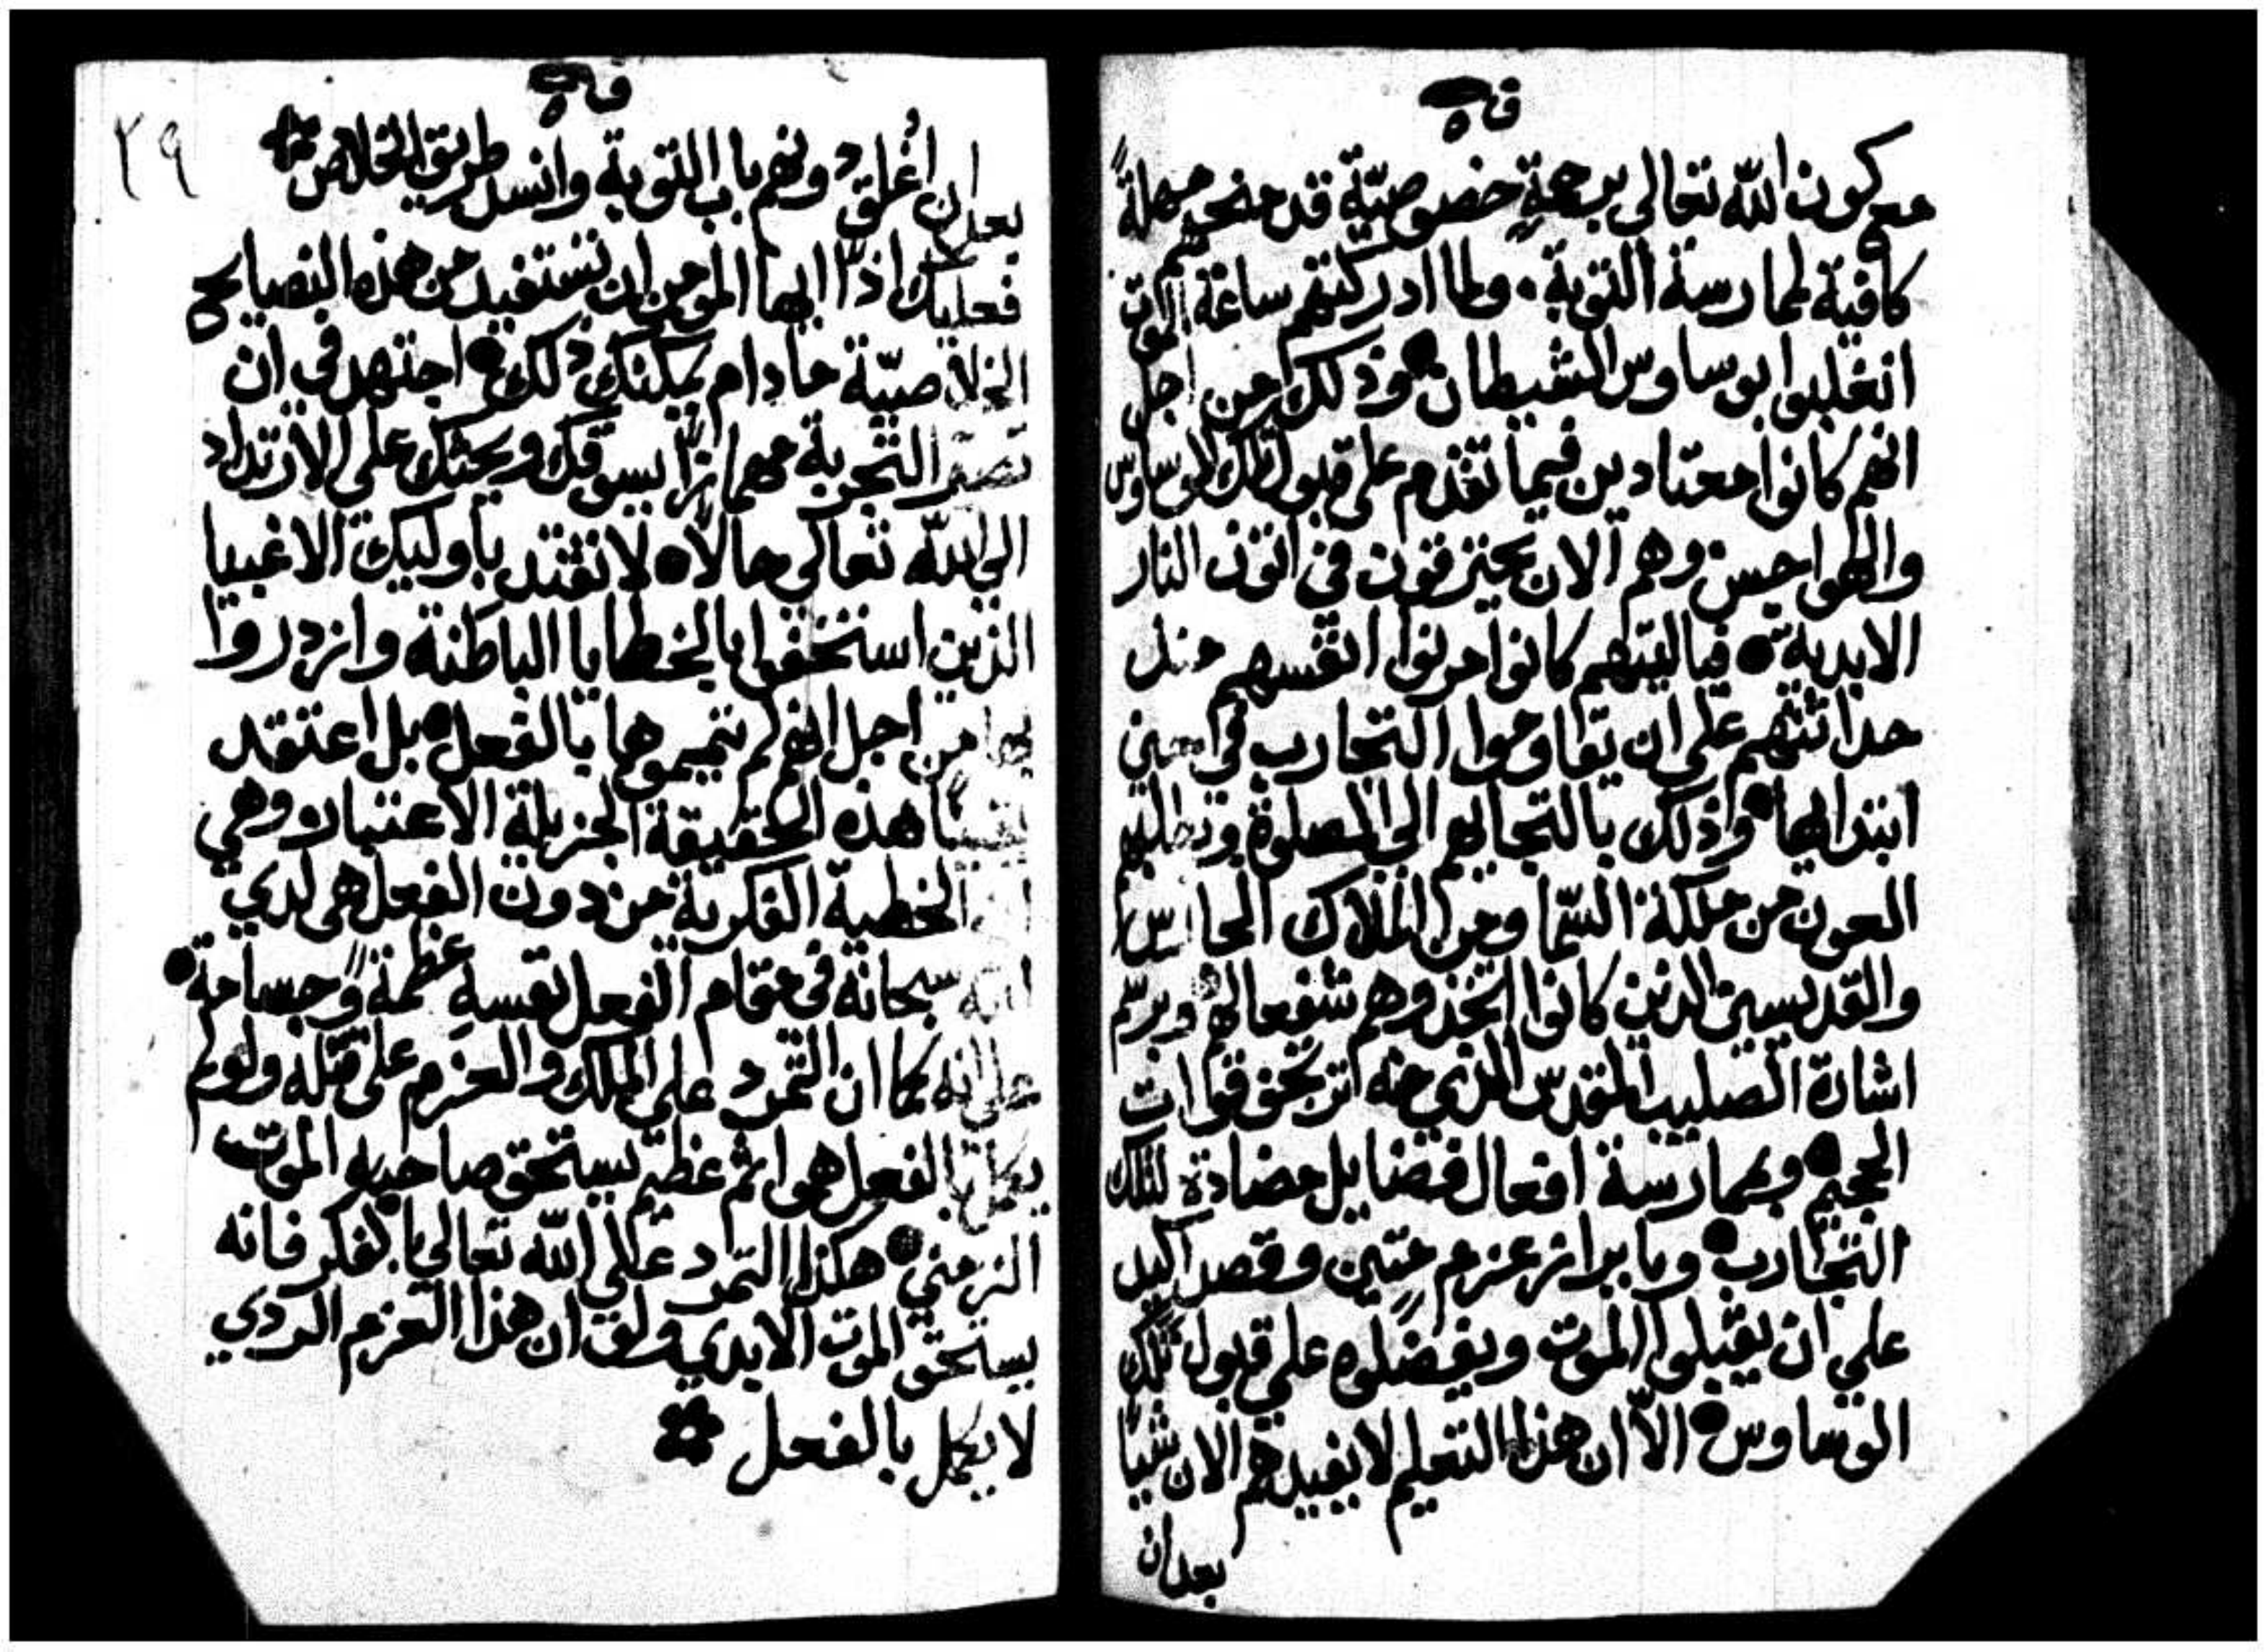 ق ٥
مع كون الله تعالى برحمةٍ خصوصيّة قد منحهم مهلةً
كافية لممارسة التوبة. ولما ادركتهم ساعة الموت
انغلبوا بوساوس الشيطان وذلك من اجل
انهم كانوا معتادين فيما تقدم على قبول تلك الوساوس
والهواجس وهم الان يحترقون في اتون النار
الابدية فياليتهم كانوا مرنوا انفسهم منذ
حداثتهم على ان يقاوموا التجارب في حين
ابتدايها وذلك بالتجايهم الى الصلوة وبطلبهم
العون من ملكة السما ومن الملاك الحارس
والقديسين الذين كانوا اتخذوهم شفعا لهم وبرسم
اشارة الصليب المقدس الذي منه ترتجف قوات
الجحيم وبممارسة افعال فضايل مضادة لتلك
التجارب وبابراز عزم متين وقصد اكيد
على ان يقبلوا الموت ويفضلوه على قبول تلك
الوساوس الاّ ان هذا التعليم لا يفيدهم الان شياً
بعد ان
ق ٥
٢٩
بعد ان اُغلق دونهم باب التوبة وانسد طريق الخلاص
فعليك اذًا ايها المومن ان تستفيد من هذه النصايح
الخلاصيّة مادام يمكنك ذلك اجتهد في ان
تصير التجربة مهمازًا يسوقك ويحثك على الارتداد
الى الله تعالى حالاً لا تقتد باوليك الاغبيا
الذين استخفوا بالخطايا الباطنة وازدروا
بها من اجل انهم لم يتمموها بالفعل بل اعتقد
يقينًا هذه الحقيقة الجزيلة الاعتبار وهي
ان الخطية الفكرية من دون الفعل هي لدي
الله سبحانه في مقام الفعل نفسهِ عظمةً وجسامة
على انه كما ان التمرد على الملك والعزم على قتله ولو لم
يكمل بالفعل هو اثم عظيم يستحق صاحبه الموت
الزمني هكذا التمرد على الله تعالى بالفكر فانه
يستحق الموت الابدي ولو ان هذا العزم الردي
لا يكمل بالفعل